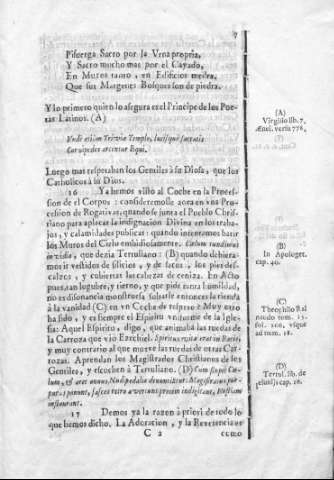 Pisuerga Sacro por la Vrna propria,
Y Sacro mucho mas por el Cayado,
En Muros tanto, en Edificios medra,
Que sus Margenes Bosques son de piedra.
Y lo primero quien lo assegura es el Principe de los Poe-
tas Latinos. (A)
Vnde etiam Triviæ Templo, lucisque sacratis
Cornipedes arcentur Equi.
Luego mas respetaban los Gentiles à su Diosa, que los
Catholicos à su Dios.
16 Ya hemos visto al Coche en la Proces-
sion de el Corpus: consideremosle aora en vna Pro-
cession de Rogativas, quando se junta el Pueblo Chris-
tiano para aplacar la indignacion Divina en los traba-
jos, y calamidades publicas: quando intentamos batir
los Muros del Cielo embidiosamente. Cœlum tundimus
invidia, que dezia Tertuliano: (B) quando debiera-
mos ir vestidos de silicios, y de sacos, los pies des-
calços, y cubiertas las cabezas de ceniza. En Acto
pues, tan lugubre, y tierno, y que pide tanta humildad,
no es disonancia monstruosa subirse entonces la tierra
à la vanidad (C) en vn Coche de respeto? Muy otro
ha sido, y es siempre el Espiritu vniforme de la Igle-
sia: Aquel Espiritu, digo, que animaba las ruedas de
la Carroza que viò Ezechiel. Spiritus vitæ erat in Rotis,
y muy contrario al que mueve las ruedas de otras Car-
rozas. Aprendan los Magistrados Christianos de los
Gentiles, y escuchen à Tertuliano. (D) Cum stupet Cœ-
lum, & aret annus, Nudipedalia denuntiatur: Magistratus pur-
puras ponunt, fasces retro avertunt precem indigitant, Hostiam
instaurant.
17 Demos ya la razon à priori de todo lo
que hemos dicho. La Adoracion, y la Reverencia se
C 2
como
(A)
Virgilio lib. 7.
Æneid. versu 778.
(B)
In Apologet.
cap. 40.
(C)
Theophilo Ral
naudo tom. 15.
fol. 202, vsque
ad num. 18.
(D)
Tertul. lib. de
jeiunijs cap. 16.